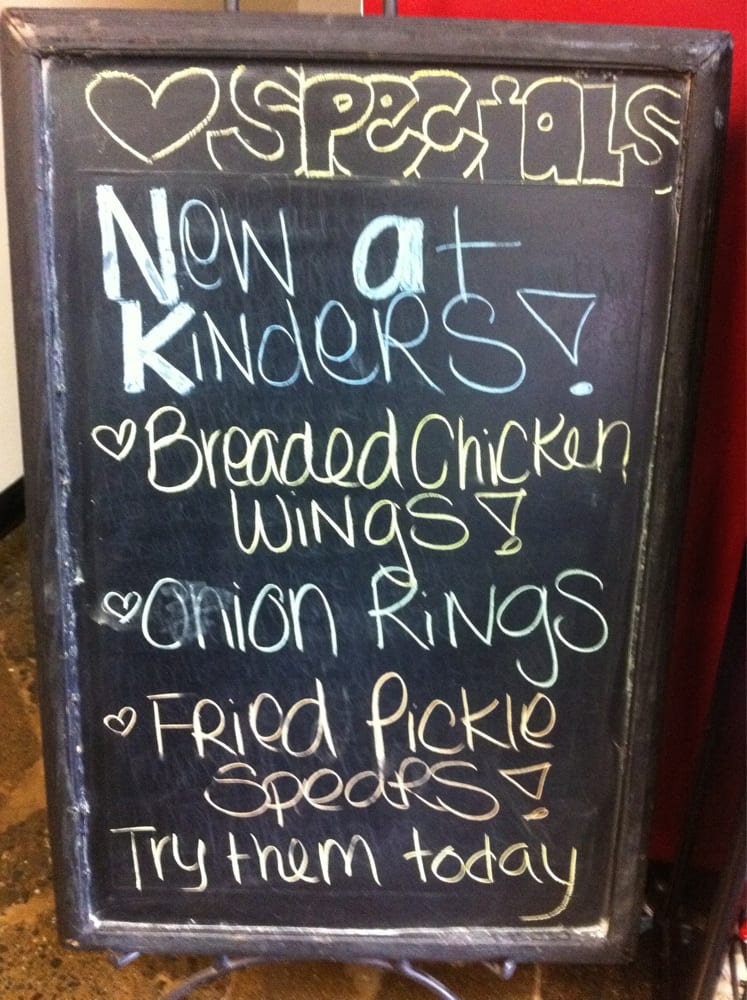 Specials
New at
Kinders!
Breaded Chicken
Wings!
Onion Rings
Fried Pickle
Spears!
Try them today